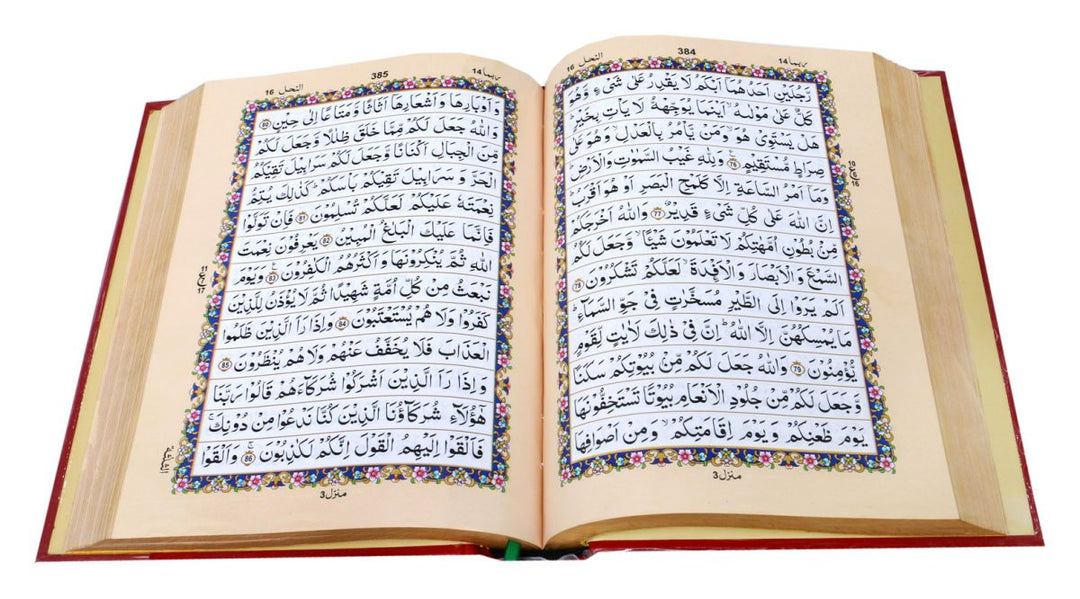 ربما ١٤ 384 النحل ١٦
رَّجُلَيۡنِ اَحَدُهُمَاۤ اَبۡكَمُ لَا يَقۡدِرُ عَلٰى شَىۡءٍ وَّهُوَ
كَلٌّ عَلٰى مَوۡلٰٮهُۙ اَيۡنَمَا يُوَجِّههُّ لَا يَاۡتِ بِخَيۡرٍؕ
هَلۡ يَسۡتَوِىۡ هُوَۙ وَمَنۡ يَّاۡمُرُ بِالۡعَدۡلِۙ وَهُوَ عَلٰى
صِرَاطٍ مُّسۡتَقِيۡمٍ 76 وَلِلّٰهِ غَيۡبُ السَّمٰوٰتِ وَالۡاَرۡضِؕ
وَمَاۤ اَمۡرُ السَّاعَةِ اِلَّا كَلَمۡحِ الۡبَصَرِ اَوۡ هُوَ اَقۡرَبُؕ
اِنَّ اللّٰهَ عَلٰى كُلِّ شَىۡءٍ قَدِيۡرٌ 77 وَاللّٰهُ اَخۡرَجَكُمۡ
مِّنۡۢ بُطُوۡنِ اُمَّهٰتِكُمۡ لَا تَعۡلَمُوۡنَ شَيۡـًٔاۙ وَّجَعَلَ لَكُمُ
السَّمۡعَ وَالۡاَبۡصَارَ وَالۡاَفۡـِٕدَةَۙ لَعَلَّكُمۡ تَشۡكُرُوۡنَ 78
اَلَمۡ يَرَوۡا اِلَى الطَّيۡرِ مُسَخَّرٰتٍ فِىۡ جَوِّ السَّمَآءِؕ
مَا يُمۡسِكُهُنَّ اِلَّا اللّٰهُؕ اِنَّ فِىۡ ذٰلِكَ لَاٰيٰتٍ لِّقَوۡمٍ
يُّؤۡمِنُوۡنَ 79 وَاللّٰهُ جَعَلَ لَكُمۡ مِّنۡۢ بُيُوۡتِكُمۡ سَكَنًا
وَّجَعَلَ لَكُمۡ مِّنۡ جُلُوۡدِ الۡاَنۡعَامِ بُيُوۡتًا تَسۡتَخِفُّوۡنَهَا
يَوۡمَ ظَعۡنِكُمۡ وَيَوۡمَ اِقَامَتِكُمۡۙ وَمِنۡ اَصۡوَافِهَا
منزل ٣
ربما ١٤ 385 النحل ١٦
وَاَوۡبَارِهَا وَاَشۡعَارِهَاۤ اَثَاثًا وَّمَتَاعًا اِلٰى حِيۡنٍ 80
وَاللّٰهُ جَعَلَ لَكُمۡ مِّمَّا خَلَقَ ظِلٰلًا وَّجَعَلَ لَكُمۡ
مِّنَ الۡجِبَالِ اَكۡنَانًا وَّجَعَلَ لَكُمۡ سَرَابِيۡلَ تَقِيۡكُمُ
الۡحَرَّ وَسَرَابِيۡلَ تَقِيۡكُمۡ بَاۡسَكُمۡؕ كَذٰلِكَ يُتِمُّ
نِعۡمَتَهٗ عَلَيۡكُمۡ لَعَلَّكُمۡ تُسۡلِمُوۡنَ 81 فَاِنۡ تَوَلَّوۡا
فَاِنَّمَا عَلَيۡكَ الۡبَلٰغُ الۡمُبِيۡنُ 82 يَعۡرِفُوۡنَ نِعۡمَتَ
اللّٰهِ ثُمَّ يُنۡكِرُوۡنَهَا وَاَكۡثَرُهُمُ الۡكٰفِرُوۡنَ 83 وَيَوۡمَ
نَبۡعَثُ مِنۡ كُلِّ اُمَّةٍ شَهِيۡدًا ثُمَّ لَا يُؤۡذَنُ لِلَّذِيۡنَ
كَفَرُوۡا وَلَا هُمۡ يُسۡتَعۡتَبُوۡنَ 84 وَاِذَا رَاَ الَّذِيۡنَ ظَلَمُوا
الۡعَذَابَ فَلَا يُخَفَّفُ عَنۡهُمۡ وَلَا هُمۡ يُنۡظَرُوۡنَ 85
وَاِذَا رَاَ الَّذِيۡنَ اَشۡرَكُوۡا شُرَكَآءَهُمۡ قَالُوۡا رَبَّنَا
هٰٓؤُلَاۤءِ شُرَكَآؤُنَا الَّذِيۡنَ كُنَّا نَدۡعُوۡا مِنۡ دُوۡنِكَۚ
فَاَلۡقَوۡا اِلَيۡهِمُ الۡقَوۡلَ اِنَّكُمۡ لَكٰذِبُوۡنَ 86 وَاَلۡقَوۡا
منزل ٣